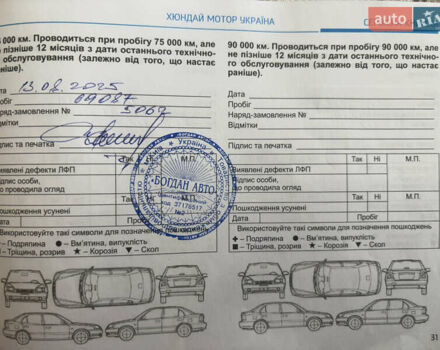 ХЮНДАЙ МОТОР УКРАЇНА
000 км. Проводиться при пробігу 75 000 км, але
пізніше 12 місяців з дати останнього технічно-
го обслуговування (залежно від того, що настає
раніше).
Дата 13.08.2025
Пробіг
Наряд-замовлення № 5069
Відмітки
Підпис та печатка
Так Ні М.П.
Виявлені дефекти ЛФП
Підпис особи,
що проводила огляд
Пошкодження усунені
Використовуйте такі символи для позначення
Подряпина ● – Вм'ятина, випуклість
Тріщина, розрив ★ – Корозія ▼ – Скол
Україна
БОГДАН АВТО
90 000 км. Проводиться при пробігу 90 000 км, але
не пізніше 12 місяців з дати останнього технічно-
го обслуговування (залежно від того, що настає
раніше).
Дата
Пробіг
Наряд-замовлення №
Відмітки
Підпис та печатка
Так Ні М.П.
Виявлені дефекти ЛФП
Підпис особи,
що проводила огляд
Пошкодження усунені
Дата Пробіг
Використовуйте такі символи для позначення пошкоджень
✚ – Подряпина ● – Вм'ятина, випуклість
■ – Тріщина, розрив ★ – Корозія ▼ – Скол
31
AUTO RIA